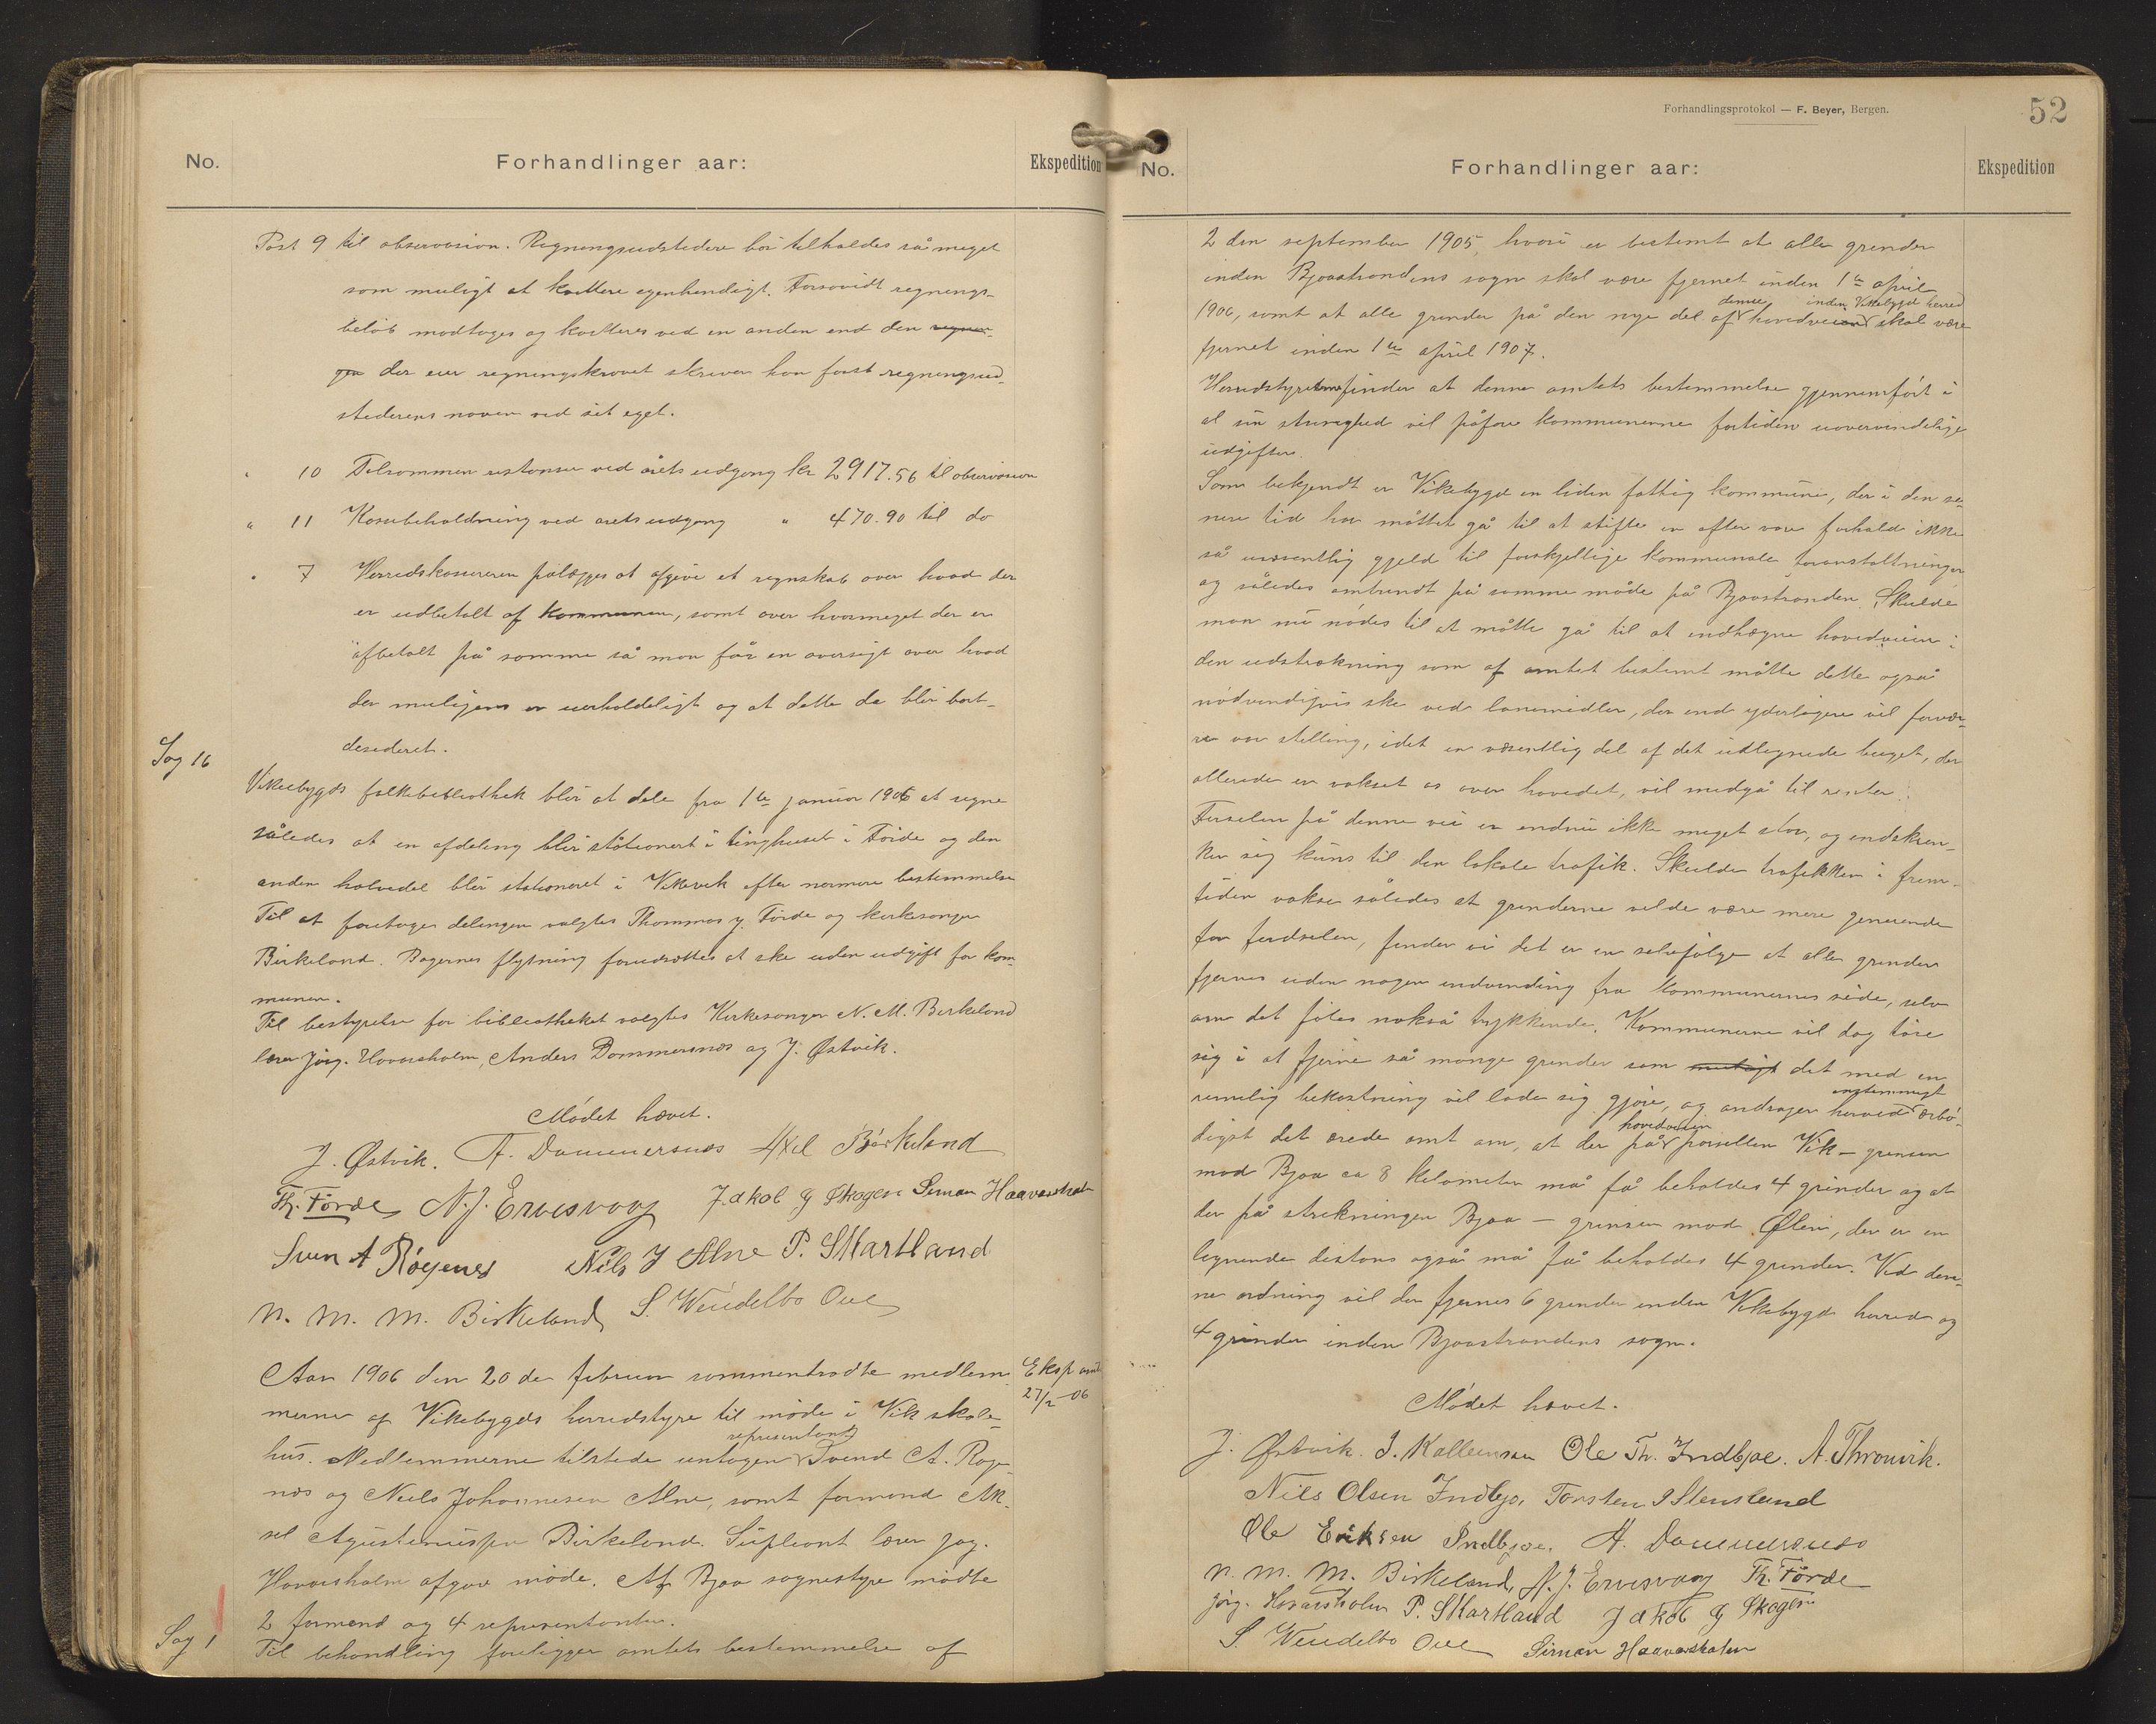 No.
Forhandlinger aar:
Ekspedition
Post 9 til observasion. Regningsudstedere bör tilholdes så meget
som muligt at kvittere egenhendigt. Forsovidt regnings-
beløb modtages og kvitteres ved en anden end den regnin-
gen der eier regningskravet skriver han först regningsud-
stederens navn ved sit eget.
" 10 Tilsammen restanser ved årets udgang kr 2917.56 til observasion
" 11 Kasebeholdning ved årets udgang " 470.90 til do
" 7 Herredskassereren pålægges at afgive et regnskab over hvad der
er udbetalt af kommunen, samt over hvormeget der er
afbetalt på samme så man får en oversigt over hvad
der muligens er uerholdeligt og at dette da blir bort-
desideret.
Sag 16
Vikebygds folkebibliothek blir at dele fra 1ste januar 1906 at regne
således at en afdeling blir stationert i tinghuset i Förde og den
anden halvedel blir stationeret i Vikevik efter nærmere bestemmelse
Til at foretage delingen valgtes Thommas J. Förde og kirkesanger
Birkeland. Bøgernes flytning forudsættes at ske uden udgift for kom-
munen.
Til bestyrelse for bibliotheket valgtes Kirkesanger N. M. Birkeland
lærer Jørg. Hovarsholm, Anders Dommersnæs og J. Østvik.
Mödet hævet.
J. Østvik. A. Dommersnes Axel Birkeland
Th. Förde N. J. Ervesvaag Jakob G Skogen Simon Haavarsholm
Sven A Röyenes Nils J Alne P. S Martland
N. M. M. Birkeland S. Wendelbo Oue
Aar 1906 den 20de februar sammentraadte medlem-
Eksp amt
27/2 - 06
merne af Vikebygds herredstyre til møde i Vik skole-
representant
hus. Medlemmerne tilstede untagen Svend A. Røge-
nes og Neels Johannesen Alne, samt formand Ak-
sel Agustinussen Birkeland. Supleant lærer Jørg.
Hovarsholm afgav møde. Af Bjoa sognestyre mødte
2 formænd og 4 representanter.
Sag 1
Til behandling foreligger amtets bestemmelse af
Forhandlingsprotokol — F. Beyer, Bergen.
52
No.
Forhandlinger aar:
Ekspedition
2den september 1905, hvori er bestemt at alle grender
inden Bjoastrandens sogn skal være fjernet inden 1ste april
denne inden Vikebygd herred
1906, samt at alle grender på den nye del af hovedveien skal være
fjernet inden 1ste april 1907.
Herredstyrerne finder at denne amtets bestemmelse gjennemført i
al sin strenghed vil påføre kommunerne fortiden uovervindelige
udgifter.
Som bekjendt er Vikebygd en liden fattig kommune, der i den se-
nere tid har måttet gå til at stifte en efter vore forhold ikke
så uvæsentlig gjeld til forskjellige kommunale foranstaltninger
og således omtrendt på samme måde på Bjoastranden. Skulde
man nu nødes til at måtte gå til at indhegne hovedveien i
den udstrækning som af amtet bestemt måtte dette også
nødvendigvis ske ved lånemidler, der end yderligere vil forvær-
re vor stilling, idet en væsentlig del af det udlignede buget, der
allerede er vokset os over hovedet, vil medgå til renter.
Færselen på denne vei er endnu ikke meget stor, og indskren-
ker sig kuns til den lokale trafik. Skulde trafikken i frem-
tiden vokse således at grenderne vilde være mere generende
for ferdselen, finder vi det er en selvfølge at alle grender
fjernes uden nogen indvending fra kommunernes side, selv
om det føles nokså trykkende. Kommunerne vil dog føie
sig i at fjerne så mange grender som muligt det med en
enstemmigt
rimelig bekostning vil lade sig gjøre, og andrager herved ærbö-
hovedveien
digst det ærede amt om, at der på parsellen Vik – grensen
mod Bjoa ca 8 kilometer må få beholdes 4 grinder og at
der på strekningen Bjoa – grensen mod Ølen, der er en
lignende distans også må få beholdes 4 grinder. Ved den-
ne ordning vil der fjernes 6 grender inden Vikebygd herred og
4 grinder inden Bjoastrandens sogn.
Mödet hævet.
J. Østvik. J. Kalleinsen Ole Th. Indbjoe. A. Thronvik.
Nils Olsen Indbjo, Torsten J Stensland
Ole Eriksen Indbjoe. A. Dommersnes
N. M. M. Birkeland, N. J. Ervesvaag Th. Förde
Jørg. Hovarsholm P. S Martland Jakob G Skogen
S. Wendelbo Oue Simon Haavarsholm